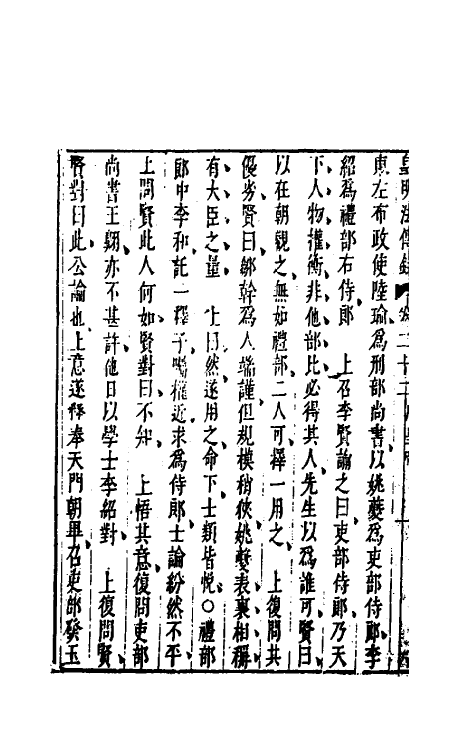 皇明法傳錄
東左布政使陸瑜爲刑部尚書以姚夔爲吏部侍郎李
紹爲禮部右侍郎　上召李賢諭之曰吏部侍郎乃天
下人物權衡非他部比必得其人先生以爲誰可賢曰
以在朝觀之無如禮部二人可擇一用之　上復問其
優劣賢曰鄒幹爲人端謹但規模稍狹姚夔表裏相稱
有大臣之量　上曰然遂用之命下士類皆悅○禮部
郎中李和託一釋子囑權近求爲侍郎士論紛然不平
上問賢此人何如賢對曰不知　上悟其意復問吏部
尚書王翺亦不甚許他日以學士李紹對　上復問賢
賢對曰此公論也上意遂釋奉天門朝畢召吏部發玉